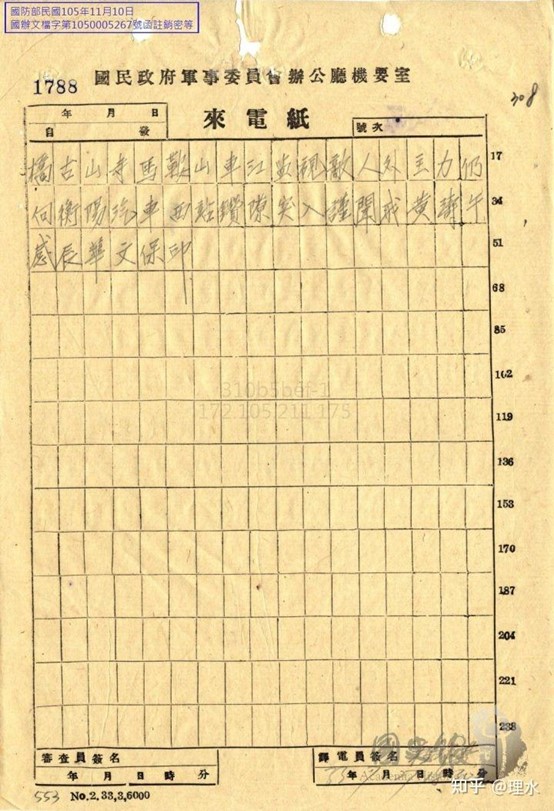 國防部民國105年11月10日
國辦文檔字第1050005267號函註銷密等
1788 國民政府軍事委員會辦公廳機要室
308
年 月 日
自 發
來電紙
號次
橋古山寺馬鞍山車江監視敵人外主力仍 17
向衡陽汽車西站鑽隙突入謹聞職黃濤午 34
感辰華文保印 51
68
85
102
310b5bef-1
172.105.211.175
119
136
153
170
187
204
221
238
審查員簽名
年 月 日 時 分
譯電員簽名
年 月 日 時 分
國史館
553 No.2,33,3,6000
知乎 @理水